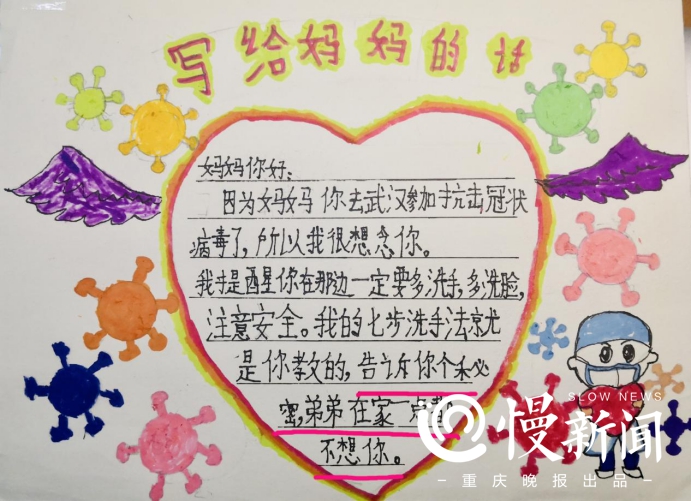 写给妈妈的话
妈妈你好:
因为妈妈你去武汉参加抗击冠状
病毒了,所以我很想念你。
我提醒你在那边一定要多洗手,多洗脸,
注意安全。我的七步洗手法就
是你教的,告诉你个秘
密,弟弟在家一点都
不想你。
SLOW NEWS
慢新闻
重庆晚报出品